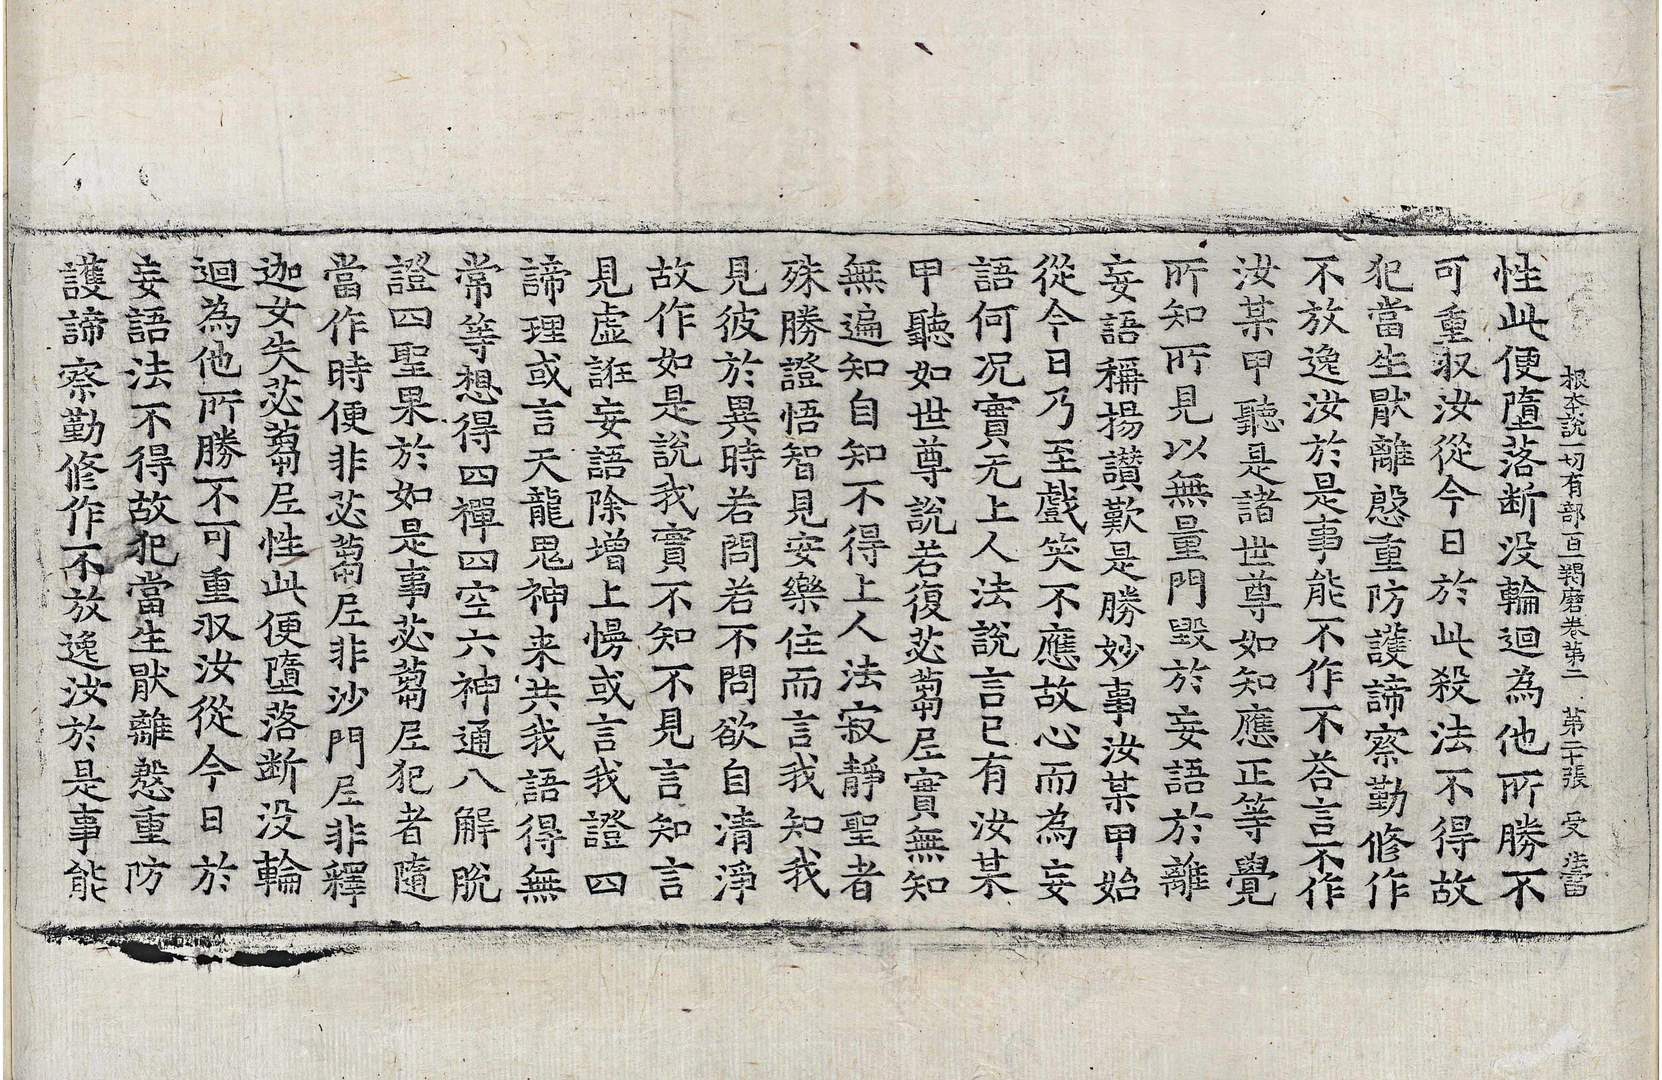 根本說一切有部百一羯磨卷第二 第二十張 受
性此便墮落断没輪迴為他所勝不
可重収汝從今日於此殺法不得故
犯當生猒離慇重防護諦察勤修作
不放逸汝於是事能不作不荅言不作
汝某甲聽是諸世尊如知應正等覺
所知所見以無量門毀於妄語於離
妄語稱揚讃歎是勝妙事汝某甲始
從今日乃至戲笑不應故心而為妄
語何況實无上人法說言已有汝某
甲聽如世尊說若復苾蒭尼實無知
無遍知自知不得上人法寂靜聖者
殊勝證悟智見安樂住而言我知我
見彼於異時若問若不問欲自清淨
故作如是說我實不知不見言知言
見虛誑妄語除增上慢或言我證四
諦理或言天龍鬼神来共我語得無
常等想得四禪四空六神通八解脫
證四聖果於如是事苾蒭尼犯者隨
當作時便非苾蒭尼非沙門尼非釋
迦女失苾蒭尼性此便墮落断没輪
迴為他所勝不可重収汝從今日於
妄語法不得故犯當生猒離慇重防
護諦察勤修作不放逸汝於是事能